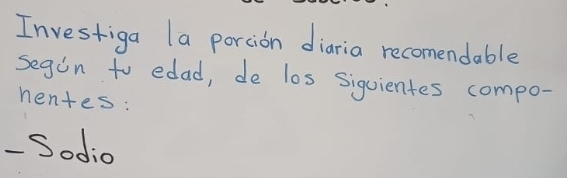 Investiga la porción diaria recomendable
según tu edad, de los siguientes compo-
nentes:
-Sodio